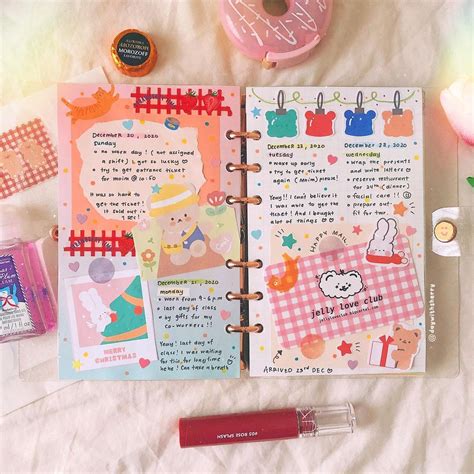 MOROZOFF
December 20, 2020
Sunday
no work day! (not assigned
a shift) & got so lucky
try to get entrance ticket
for momin @ 10:50
was so hard to
get the ticket!
it sold out in
MERRY CHRISTMAS
December 21, 2020
monday
work from 9-6pm
last day of class
buy gifts for my
co-workers!!
Yeay! last day of
class! I was waiting
for this for long time
hehe! Can take a breath
December 22, 2020
tuesday
Wake up early
try to get ticket
again
Yeay!! I can't believe it
I was able to get the
ticket! And I bought
alot of things
December 23, 2020
wednesday
wrap the presents
and write letters
reserve restaurant
for 24th (dinner)
facial care!!
prepare outfit
for tmr
HAPPY MAIL
jelly love club
ARRIVED 23rd DEC
#05 ROSE SPLASH